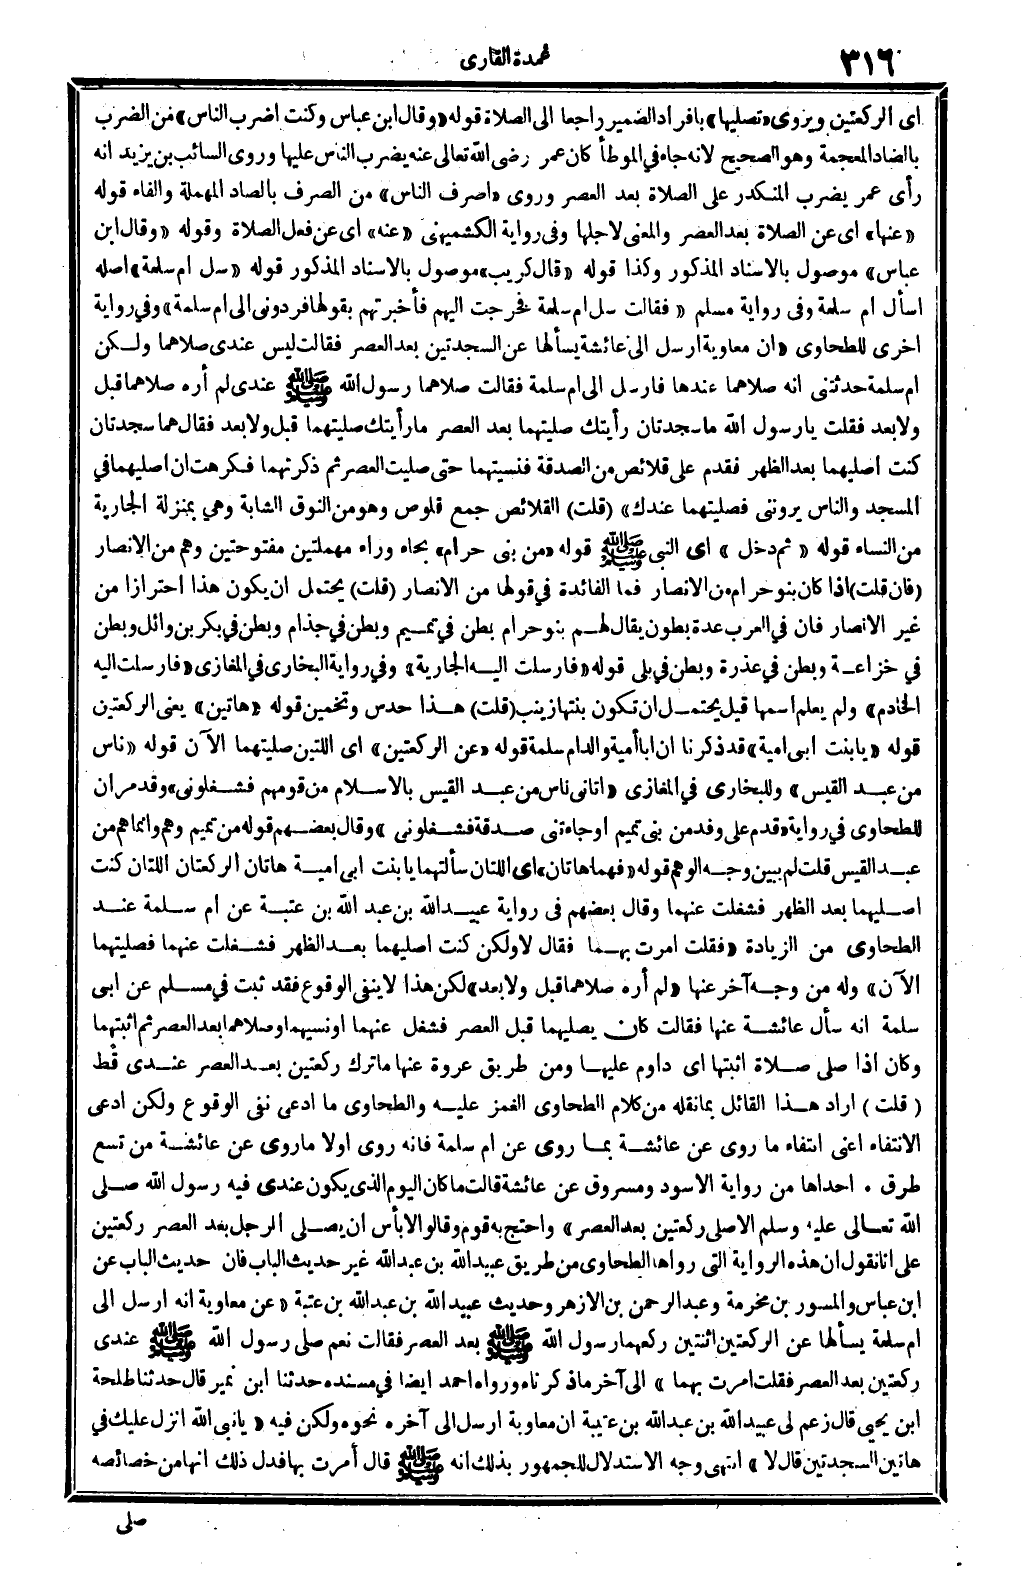 ٣١٦
عمدة القارى
اى الركعتين ويروى «تصليها» بافراد الضمير راجعا الى الصلاة قوله «وقال ابن عباس وكنت اضرب الناس» من الضرب
بالضاد المعجمة وهو الصحيح لانه جاء فى الموطأ كان عمر رضى الله تعالى عنه يضرب الناس عليها وروى السائب بن يزيد انه
رأى عمر يضرب المنكدر على الصلاة بعد العصر وروى «اصرف الناس» من الصرف بالصاد المهملة والفاء قوله
«عنها» اى عن الصلاة بعد العصر والمعنى لاجلها وفى رواية الكشميهنى «عنه» اى عن فعل الصلاة وقوله «وقال ابن
عباس» موصول بالاسناد المذكور وكذا قوله «قال كريب» موصول بالاسناد المذكور قوله «سل ام سلمة» اصله
اسأل ام سلمة وفى رواية مسلم «فقالت سل ام سلمة فخرجت اليهم فأخبرتهم بقولها فردونى الى ام سلمة» وفى رواية
اخرى للطحاوى «ان معاوية ارسل الى عائشة يسألها عن السجدتين بعد العصر فقالت ليس عندى صلاهما ولكن
ام سلمة حدثتنى انه صلاهما عندها فارسل الى ام سلمة فقالت صلاهما رسول الله ﷺ عندى لم أره صلاهما قبل
ولا بعد فقلت يا رسول الله ما سجدتان رأيتك صليتهما بعد العصر ما رأيتك صليتهما قبل ولا بعد فقال هما سجدتان
كنت اصليهما بعد الظهر فقدم على قلائص من الصدقة فنسيتهما حتى صليت العصر ثم ذكرتهما فكرهت ان اصليهما فى
المسجد والناس يروننى فصليتهما عندك» (قلت) القلائص جمع قلوص وهو من النوق الشابة وهي بمنزلة الجارية
من النساء قوله «ثم دخل» اى النبى ﷺ قوله «من بنى حرام» بحاء وراء مهملتين مفتوحتين وهم من الانصار
(فان قلت) اذا كان بنو حرام من الانصار فما الفائدة فى قولها من الانصار (قلت) يحتمل ان يكون هذا احترازا من
غير الانصار فان فى العرب عدة بطون يقال لهم بنو حرام بطن فى تميم وبطن فى جذام وبطن فى بكر بن وائل وبطن
فى خزاعة وبطن فى عذرة وبطن فى بلى قوله «فارسلت اليه الجارية» وفى رواية البخارى فى المغازى «فارسلت اليه
الخادم» ولم يعلم اسمها قيل يحتمل ان تكون بنتها زينب (قلت) هذا حدس وتخمين قوله «هاتين» يعنى الركعتين
قوله «يا بنت ابى امية» قد ذكرنا ان ابا أمية والد ام سلمة قوله «عن الركعتين» اى اللتين صليتهما الآن قوله «ناس
من عبد القيس» وللبخارى فى المغازى «اتانى ناس من عبد القيس بالاسلام من قومهم فشغلونى» وقد مر ان
للطحاوى فى رواية «قدم على وفد من بنى تميم او جاءتنى صدقة فشغلونى» وقال بعضهم قوله من تميم وهم وانما هم من
عبد القيس قلت لم يبين وجه الوهم قوله «فهما هاتان» اى اللتان سألتهما يا بنت ابى امية هاتان الركعتان اللتان كنت
اصليهما بعد الظهر فشغلت عنهما وقال بعضهم فى رواية عبيد الله بن عبد الله بن عتبة عن ام سلمة عند
الطحاوى من الزيادة «فقلت امرت بهما فقال لا ولكن كنت اصليهما بعد الظهر فشغلت عنهما فصليتهما
الآن» وله من وجه آخر عنها «لم أره صلاهما قبل ولا بعد» لكن هذا لا ينفى الوقوع فقد ثبت فى مسلم عن ابى
سلمة انه سأل عائشة عنها فقالت كان يصليهما قبل العصر فشغل عنهما او نسيهما وصلاهما بعد العصر ثم اثبتهما
وكان اذا صلى صلاة اثبتها اى داوم عليها ومن طريق عروة عنها ما ترك ركعتين بعد العصر عندى قط
(قلت) اراد هذا القائل بما نقله من كلام الطحاوى الغمز عليه والطحاوى ما ادعى نفى الوقوع ولكن ادعى
الانتفاء اعنى انتفاء ما روى عن عائشة بما روى عن ام سلمة فانه روى اولا ما روى عن عائشة من تسع
طرق . احداها من رواية الاسود ومسروق عن عائشة قالت ما كان اليوم الذى يكون عندى فيه رسول الله صلى
الله تعالى عليه وسلم الا صلى ركعتين بعد العصر» واحتج به قوم وقالوا لا بأس ان يصلى الرجل بعد العصر ركعتين
على انا نقول ان هذه الرواية التى رواها الطحاوى من طريق عبيد الله بن عبد الله غير حديث الباب فان حديث الباب عن
ابن عباس والمسور بن مخرمة وعبد الرحمن بن الازهر وحديث عبيد الله بن عبد الله بن عتبة «عن معاوية انه ارسل الى
ام سلمة يسألها عن الركعتين اثنتين ركعهما رسول الله ﷺ بعد العصر فقالت نعم صلى رسول الله ﷺ عندى
ركعتين بعد العصر فقلت امرت بهما» الى آخر ما ذكرناه ورواه احمد ايضا فى مسنده حدثنا ابن نمير قال حدثنا طلحة
ابن يحيى قال زعم لى عبيد الله بن عبد الله بن عتبة ان معاوية ارسل الى آخره نحوه ولكن فيه «يا نبى الله انزل عليك فى
هاتين السجدتين قال لا» انتهى وجه الاستدلال للجمهور بذلك انه ﷺ قال أمرت بها فدل ذلك انها من خصائصه
صلى